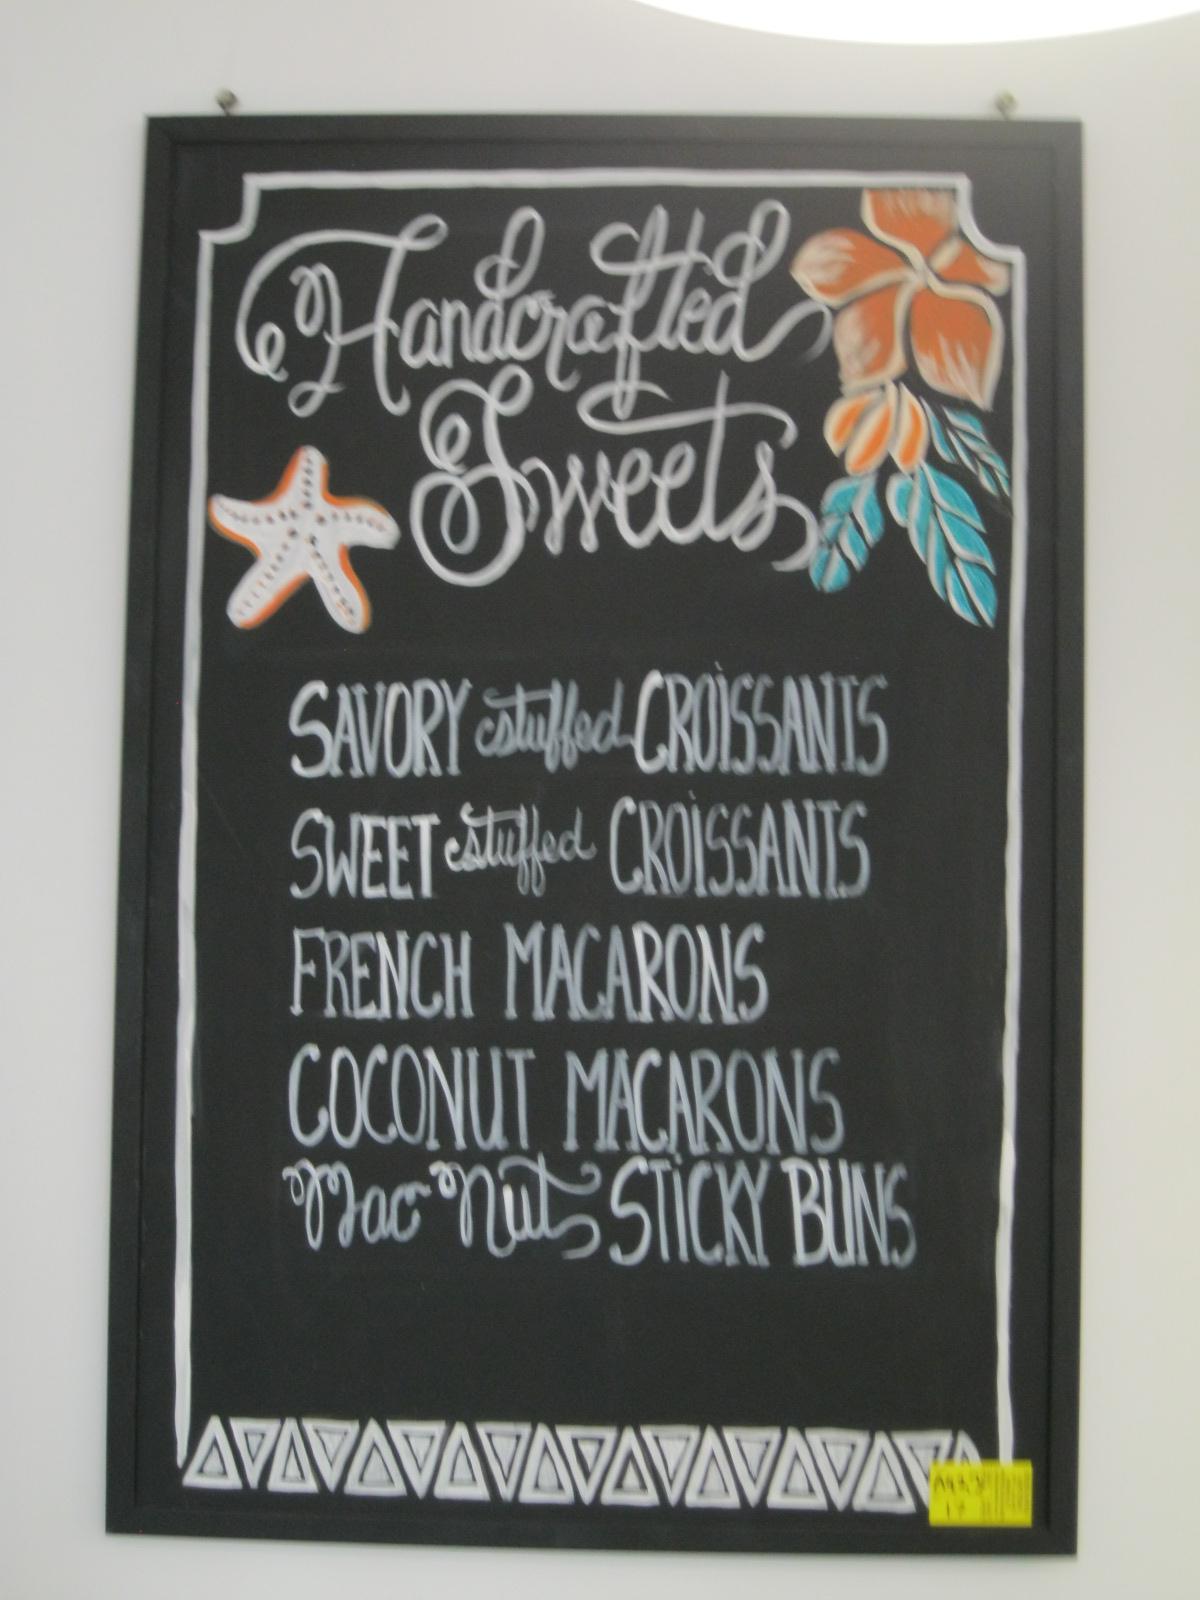 Handcrafted
Sweets
SAVORY stuffed CROISSANTS
SWEET stuffed CROISSANTS
FRENCH MACARONS
COCONUT MACARONS
Mac Nut STICKY BUNS
17